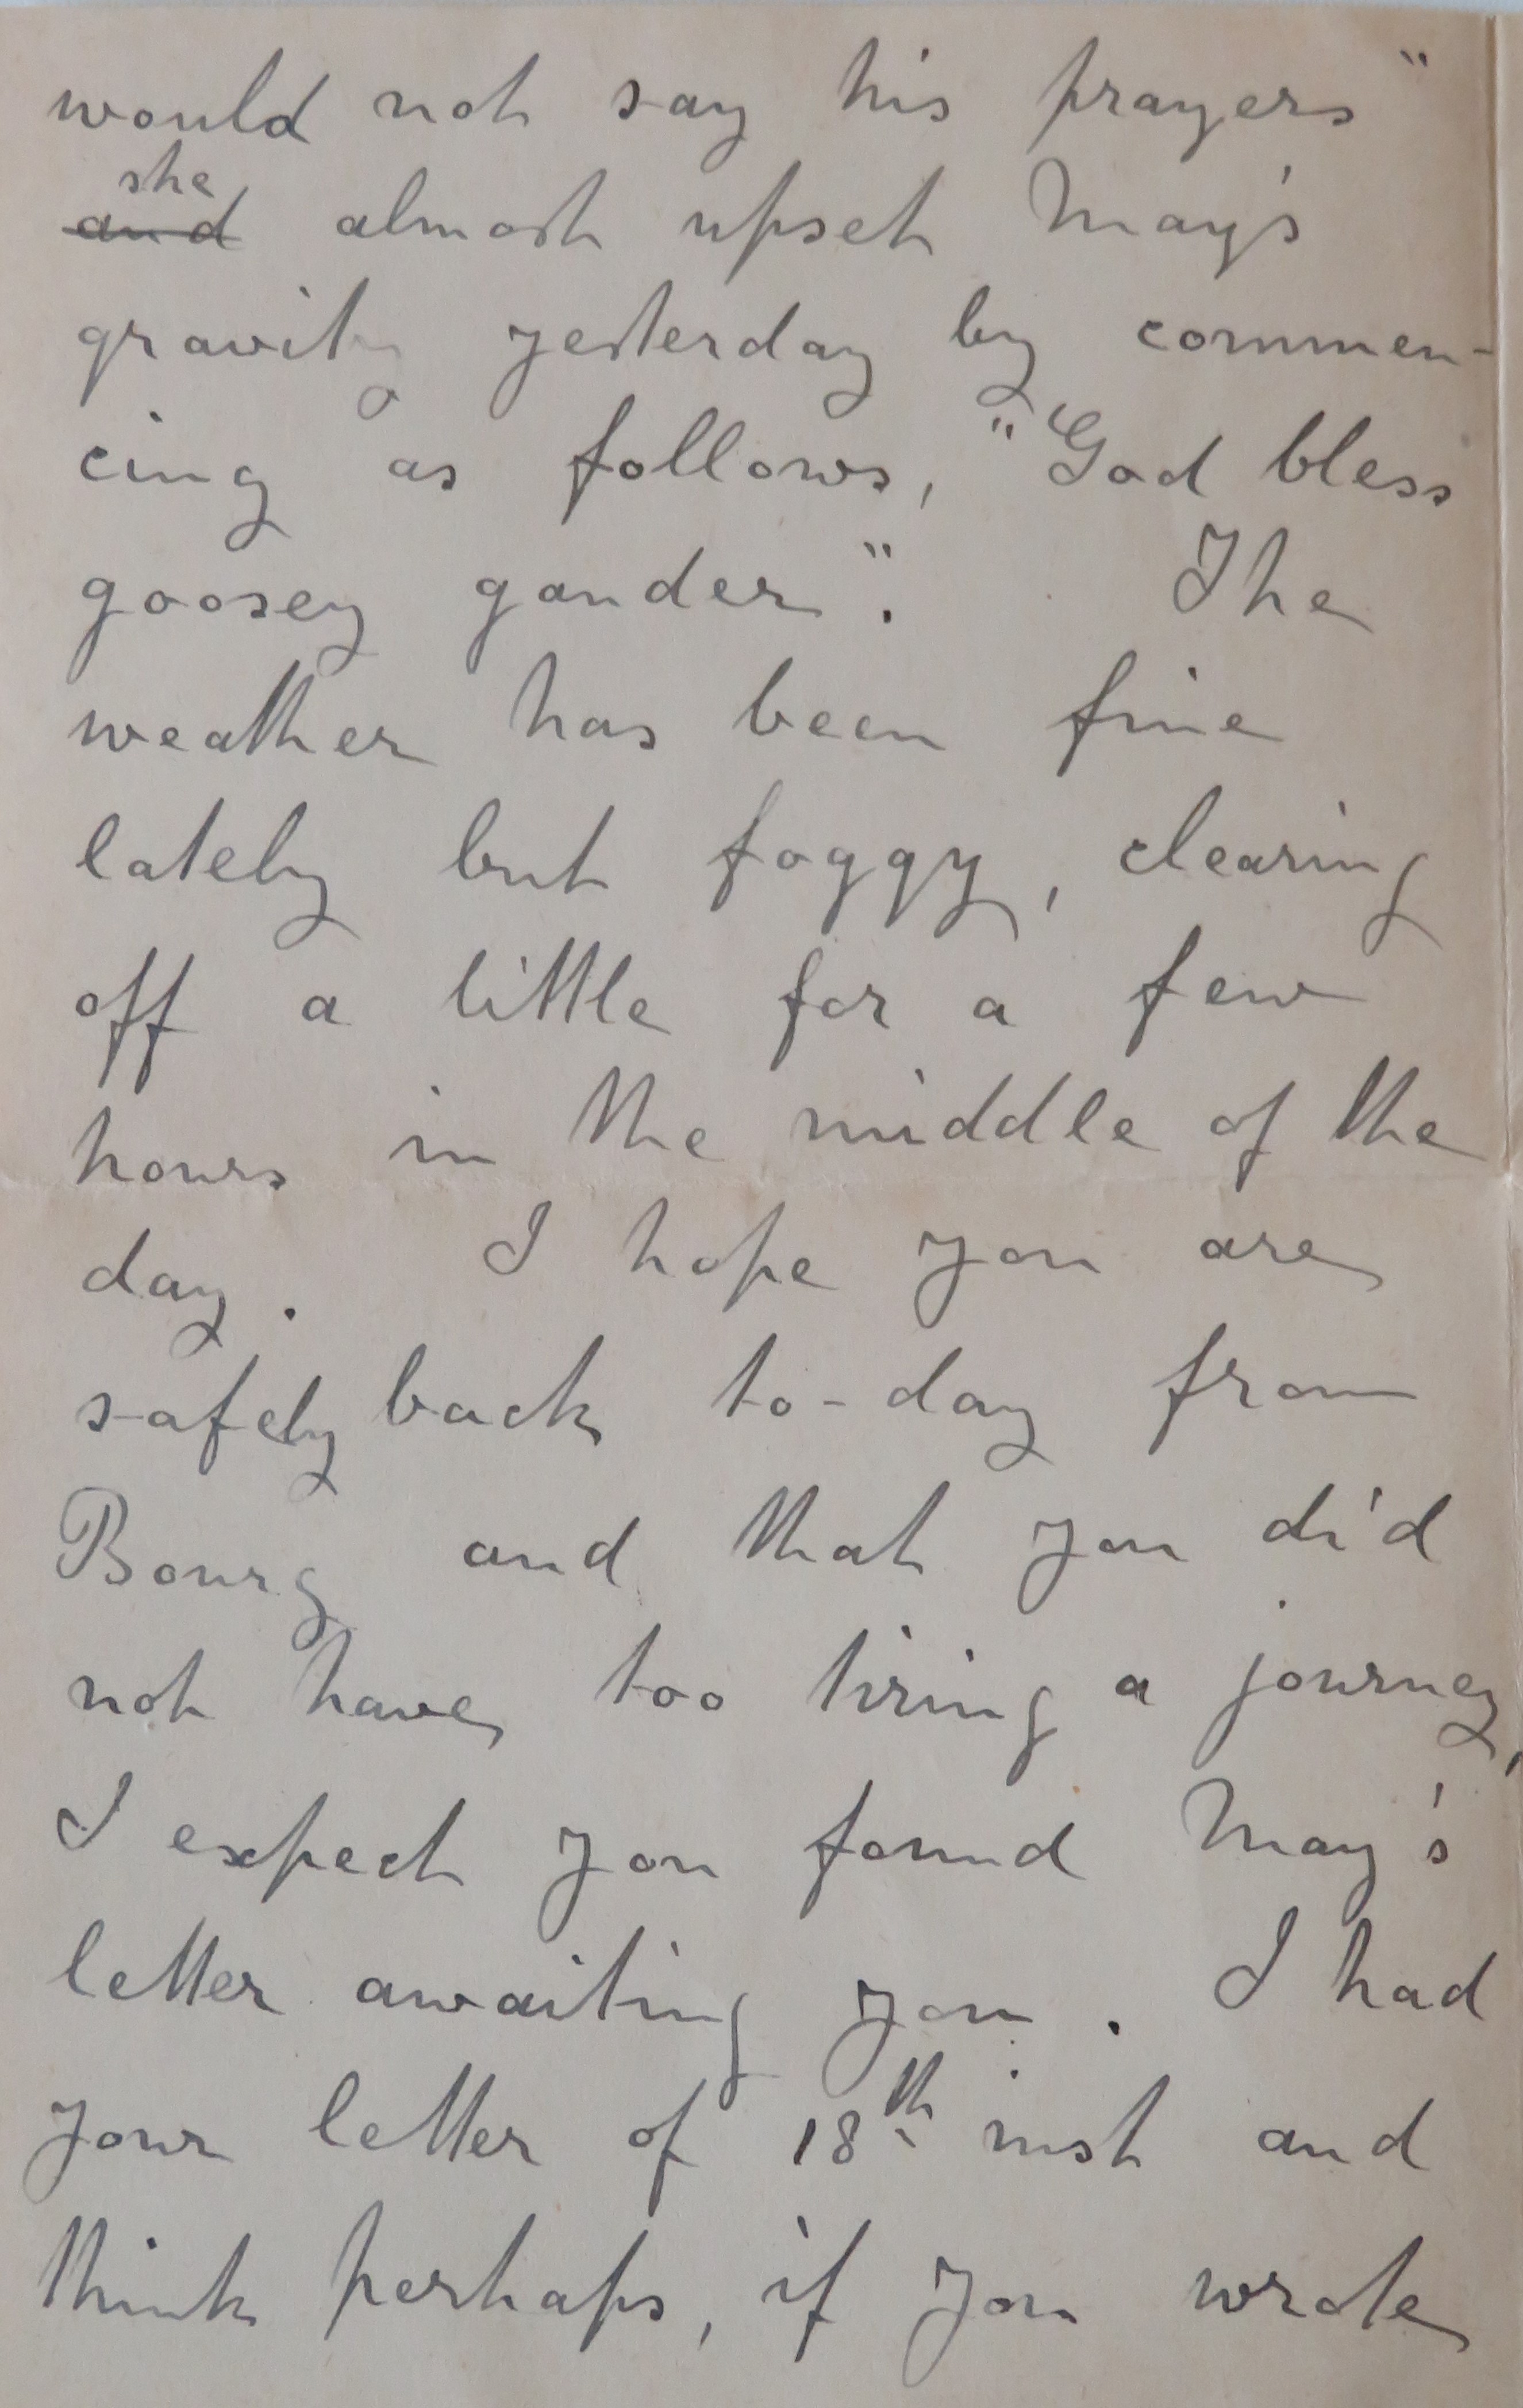 would not say his prayers"
she
and almost upset May's
gravity yesterday by commen-
cing as follows, "God bless
goosey gander". The
weather has been fine
lately but foggy, clearing
off a little for a few
hours in the middle of the
day. I hope you are
safely back to-day from
Bourg and that you did
not have too tiring a journey,
I expect you found May's
letter awaiting you. I had
your letter of 18th inst and
think perhaps, if you wrote